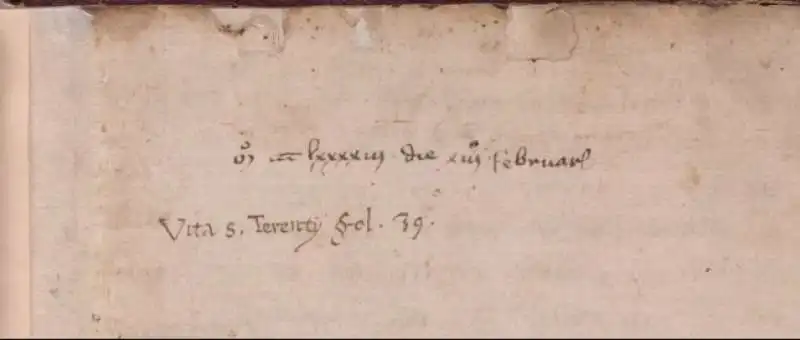 lxxxxiij die xiiij februarȷ
Vita s. Terentij Fol. 39.